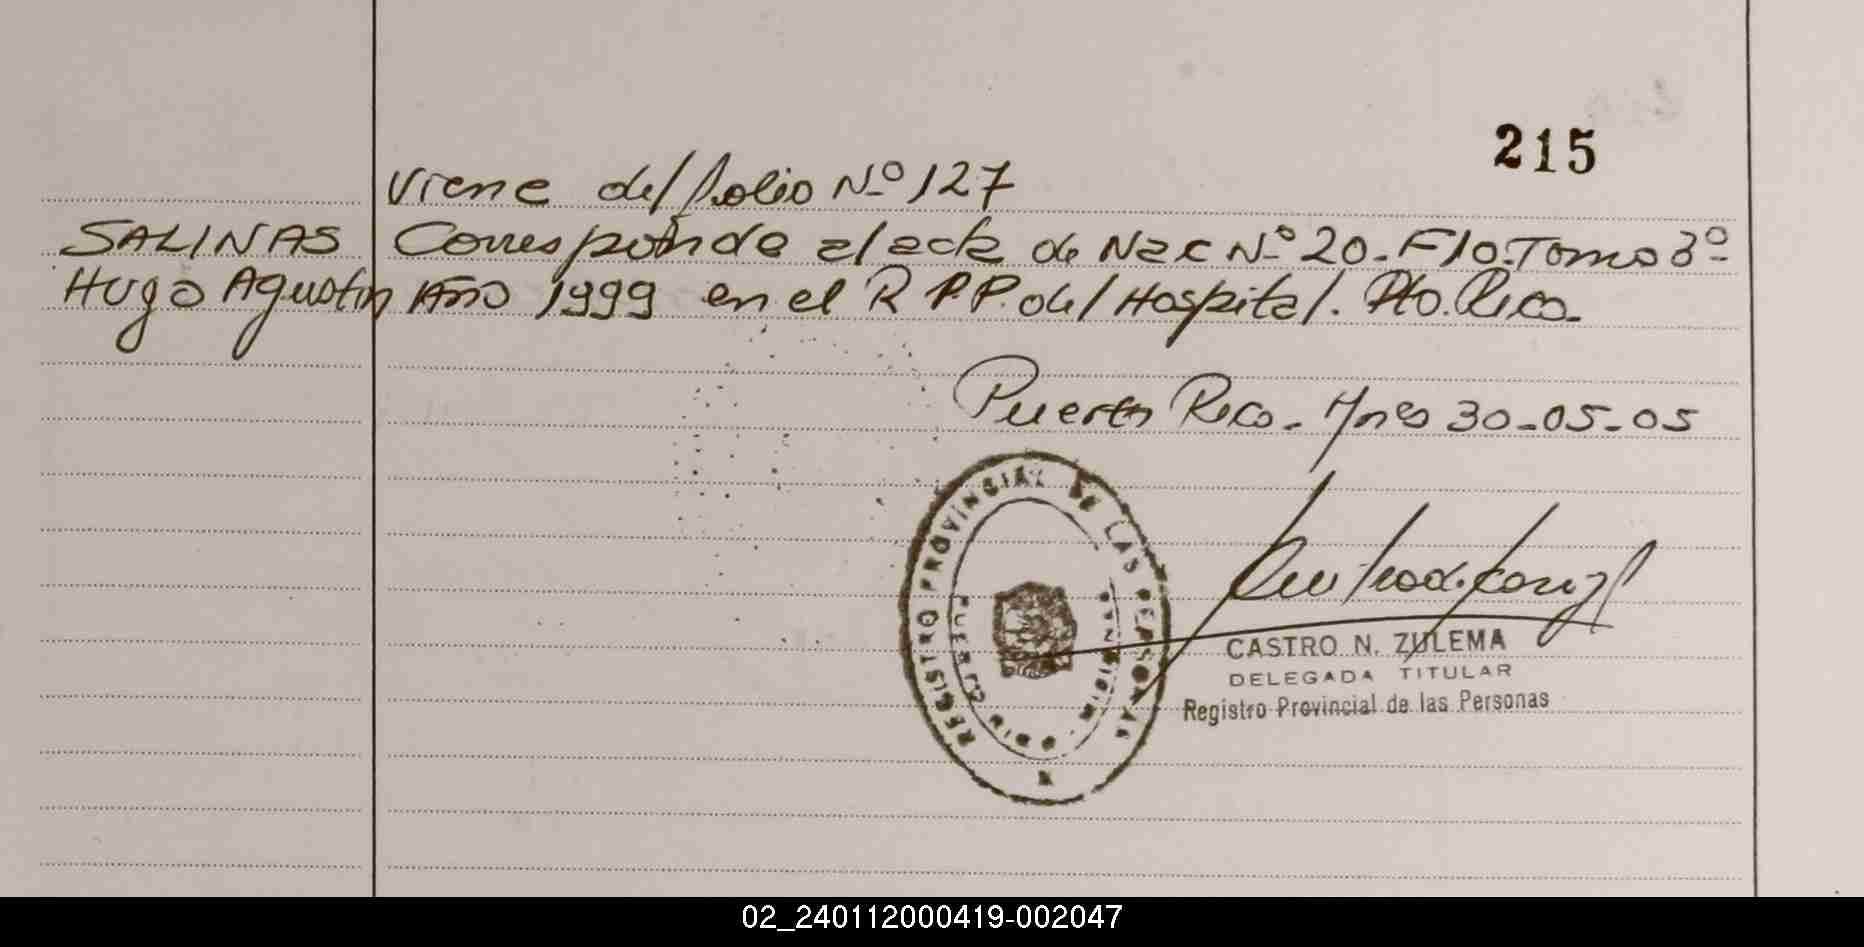 215
Viene del folio Nº 127
SALINAS Corresponde al acta de Nac Nº 20 - F10 - Tomo 3º-
Hugo Agustin Año 1999 en el R.P.P. del Hospital. Pto. Rico.
Puerto Rico - Mnes 30-05-05
REGISTRO PROVINCIAL DE LAS PERSONAS
PUERTO RICO MISIONES
CASTRO N. ZULEMA
DELEGADA TITULAR
Registro Provincial de las Personas
02_240112000419-002047